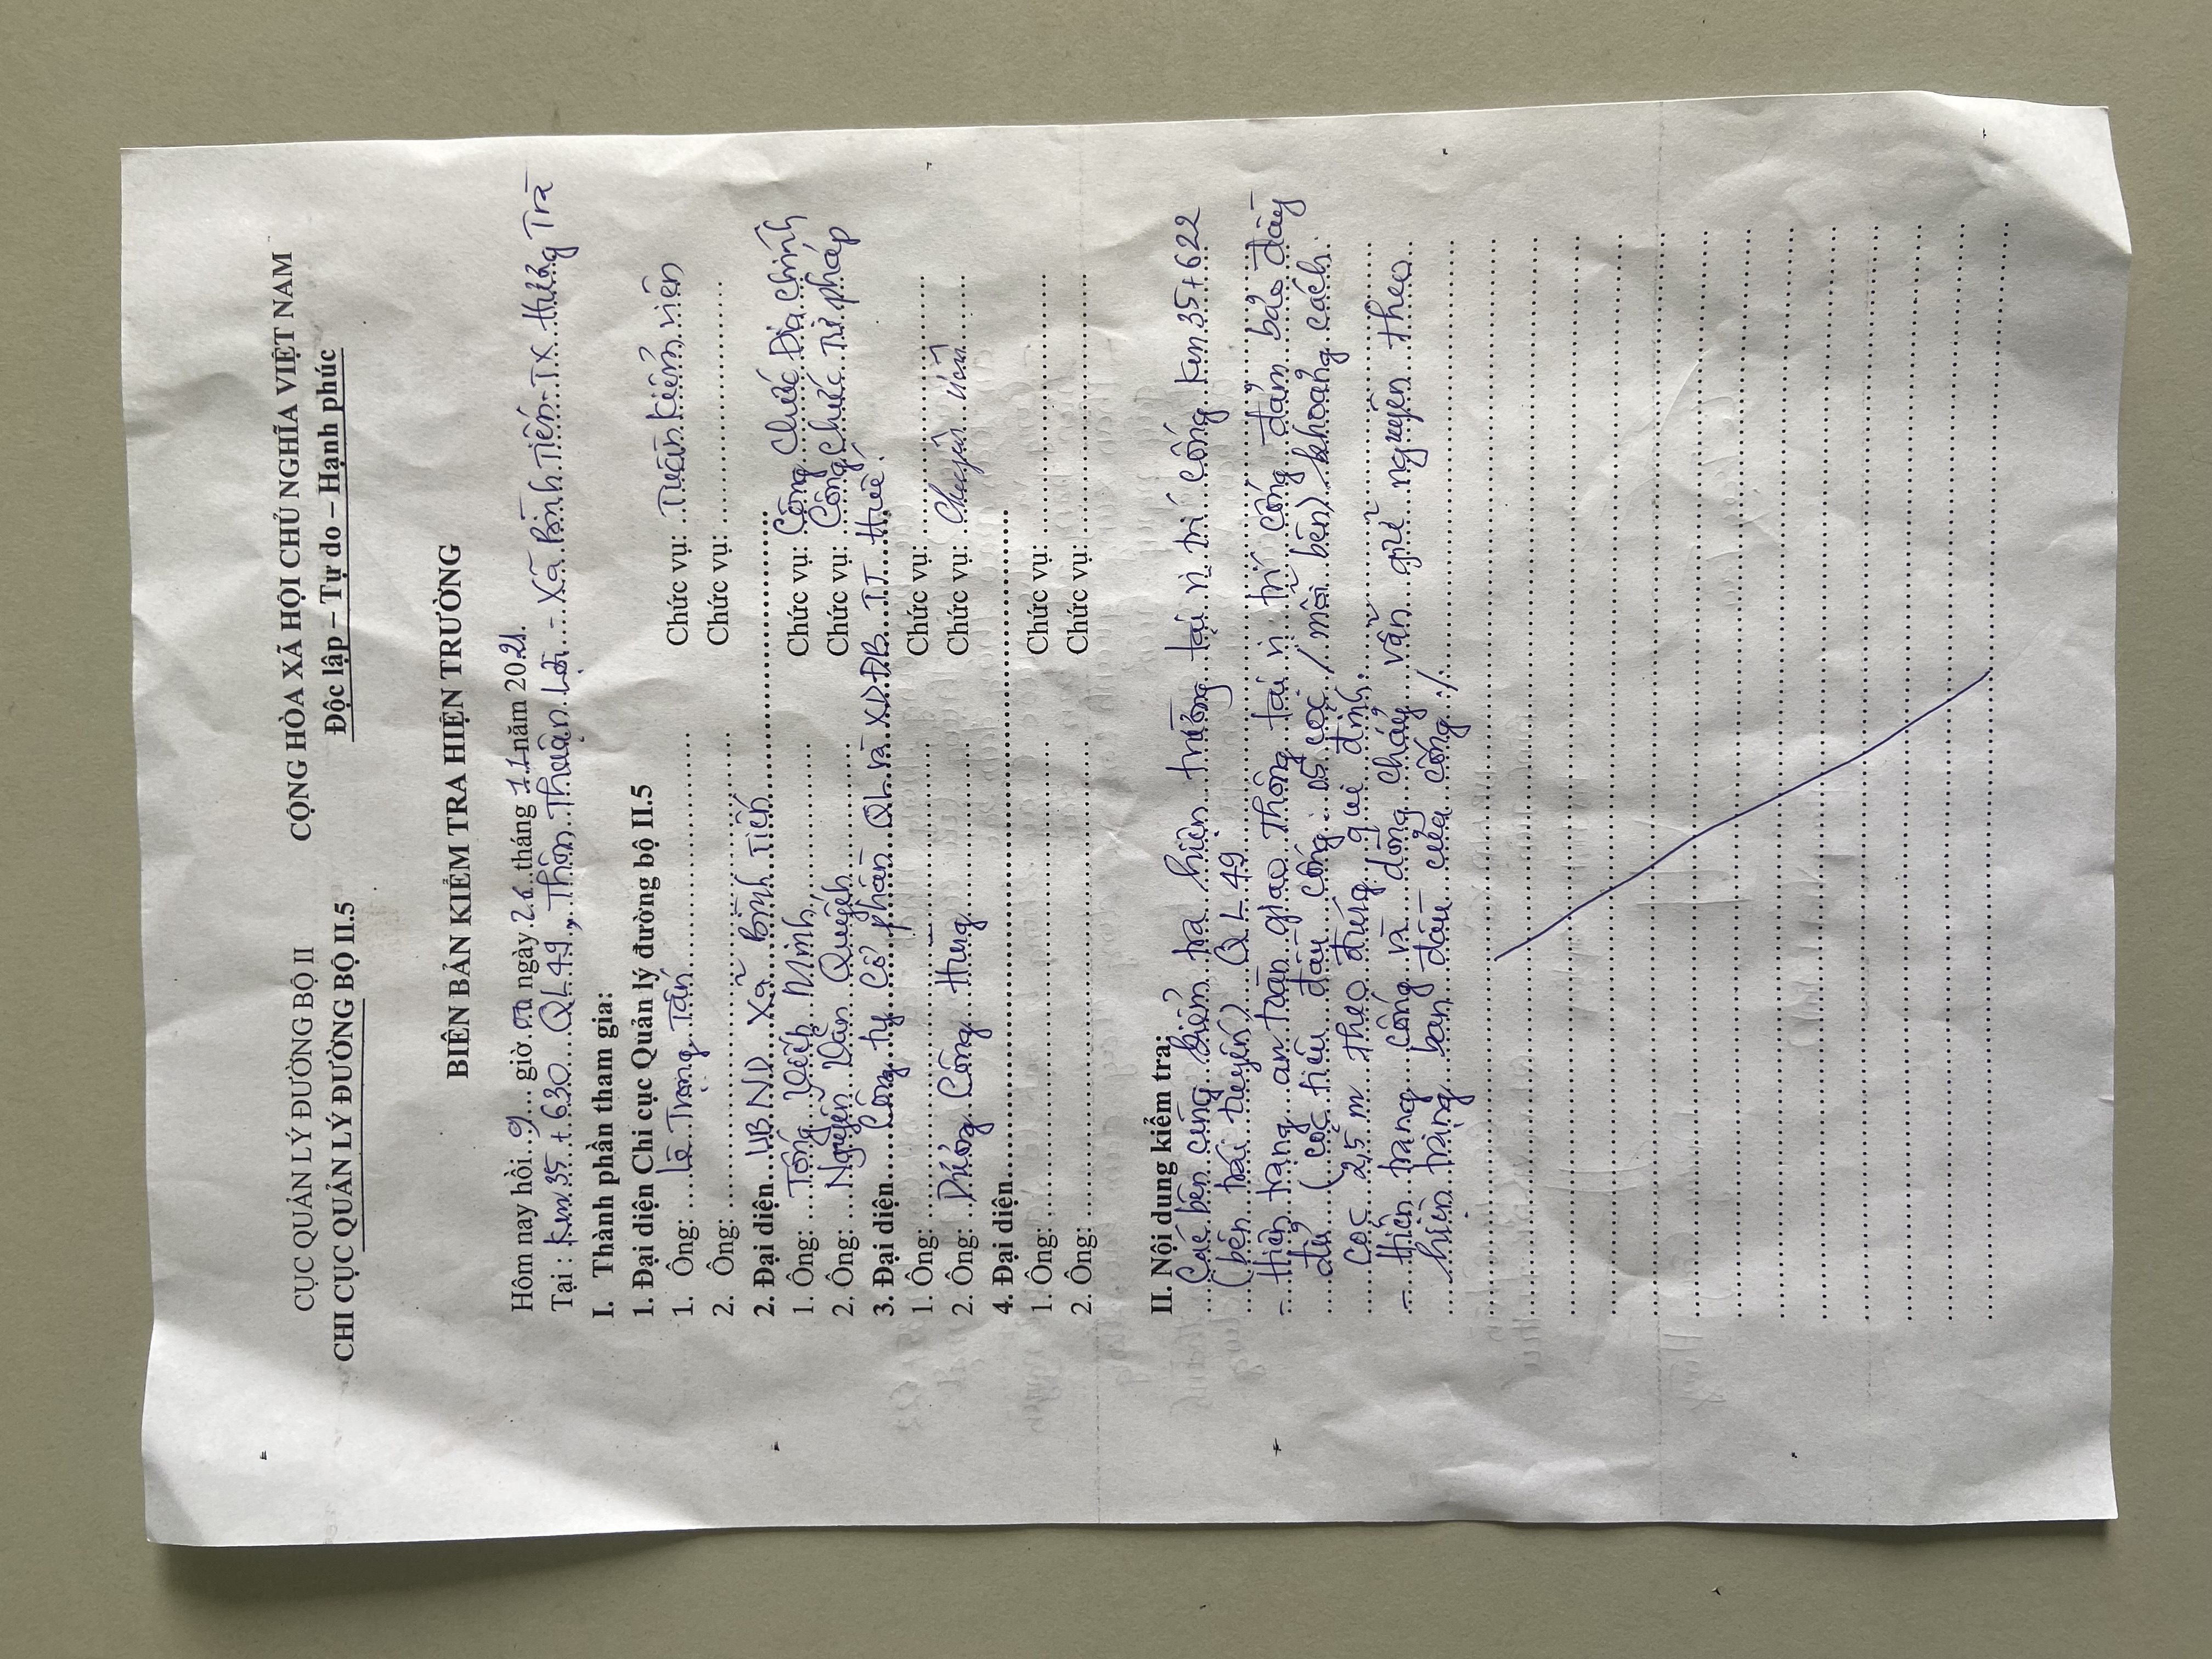 CỤC QUẢN LÝ ĐƯỜNG BỘ II
CHI CỤC QUẢN LÝ ĐƯỜNG BỘ II.5
CỘNG HÒA XÃ HỘI CHỦ NGHĨA VIỆT NAM
Độc lập – Tự do – Hạnh phúc
BIÊN BẢN KIỂM TRA HIỆN TRƯỜNG
Hôm nay hồi 9 giờ 00 ngày 26 tháng 11 năm 2021.
Tại : Km35+630 QL49, Thôn Thuận Lợi - Xã Bình Tiến - TX Hương Trà
I. Thành phần tham gia:
1. Đại diện Chi cục Quản lý đường bộ II.5
1. Ông: Lê Trọng Tấn Chức vụ: Tuần kiểm viên
2. Ông: Chức vụ:
2. Đại diện UBND Xã Bình Tiến
1. Ông: Tống Viết Minh Chức vụ: Công chức Địa chính
2. Ông: Nguyễn Văn Quyết Chức vụ: Công chức Tư pháp
3. Đại diện Công ty Cổ phần QL và XDĐB TT Huế.
1. Ông: Chức vụ:
2. Ông: Công Hưng Chức vụ: Chuyên viên
4. Đại diện
1. Ông: Chức vụ:
2. Ông: Chức vụ:
II. Nội dung kiểm tra:
Các bên cùng kiểm tra hiện trường tại vị trí cống Km35+622
(bên trái tuyến) QL49
- Hiện trạng an toàn giao thông tại vị trí cống đảm bảo đầy
đủ (cọc tiêu đầu cống 05 cọc / mỗi bên) khoảng cách
cọc 2,5 m theo đúng qui định.
- Hiện trạng cống và dòng chảy vẫn giữ nguyên theo
hiện trạng ban đầu của cống ./